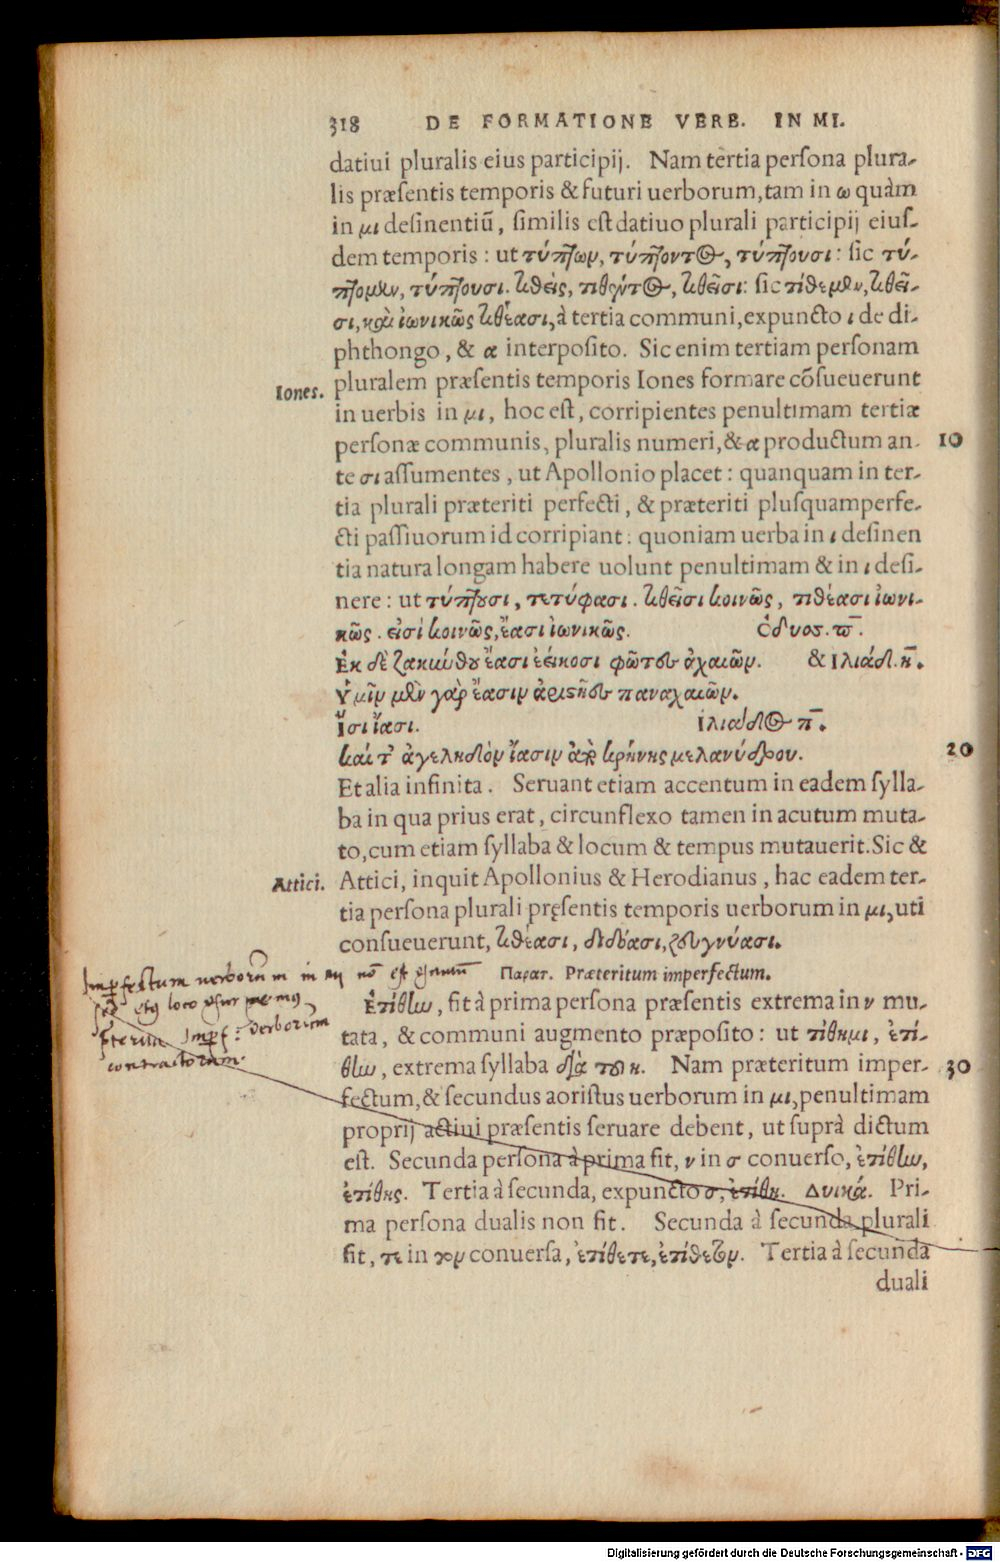 318 DE FORMATIONE VERB. IN MI.
datiui pluralis eius participij. Nam tertia persona plura-
lis præsentis temporis & futuri uerborum, tam in ω quàm
in μι desinentiũ, similis est datiuo plurali participij eius-
dem temporis: ut τύπ̣τωμ, τύπτοντος, τύπτουσι: sic τύ-
πτομεν, τύπτουσι. τιθεὶς, τιθέντος, τιθεῖσι: sic τίθεμεν, τιθεῖ-
σι, καὶ ἰωνικῶς τιθέασι, à tertia communi, expuncto ι de di-
phthongo, & α interposito. Sic enim tertiam personam
Iones. pluralem præsentis temporis Iones formare cõsueuerunt
in uerbis in μι, hoc est, corripientes penultimam tertiæ
personæ communis, pluralis numeri, & α productum an- 10
te σι assumentes, ut Apollonio placet: quanquam in ter-
tia plurali præteriti perfecti, & præteriti plusquamperfe-
cti passiuorum id corripiant: quoniam uerba in ι desinen
tia natura longam habere uolunt penultimam & in ι desi-
nere: ut τύπτουσι, τετύφασι. τιθεῖσι κοινῶς, τιθέασι ἰωνι-
κῶς. εἰσὶ κοινῶς, ἔασι ἰωνικῶς. Ὀδυσ. π̅.
Ἐκ δὲ ζακύνθου ἔασι ἐείκοσι φῶτες ἀχαιῶν. & Ἰλιάδ. κ̅.
Ὑμῖν μὲν γὰρ ἔασιν ἀριστῆες παναχαιῶν.
Ἴσι ἴασι. Ἰλιάδος π̅.
καί τ' ἀγεληδὸν ἴασιν ἀπὸ κρήνης μελανύδρου. 20
Et alia infinita. Seruant etiam accentum in eadem sylla-
ba in qua prius erat, circunflexo tamen in acutum muta-
to, cum etiam syllaba & locum & tempus mutauerit. Sic &
Attici. Attici, inquit Apollonius & Herodianus, hac eadem ter-
tia persona plurali pręsentis temporis uerborum in μι, uti
consueuerunt, τιθέασι, διδόασι, ζευγνύασι.
Παρατ. Præteritum imperfectum.
Imperfectum uerborum in μι nõ est
loco
Imperf: verborum
contractorum.
Ἐτίθην, fit à prima persona præsentis extrema in ν mu-
tata, & communi augmento præposito: ut τίθημι, ἐτί-
θην, extrema syllaba διὰ τοῦ κ. Nam præteritum imper- 30
fectum, & secundus aoristus uerborum in μι, penultimam
proprij actiui præsentis seruare debent, ut suprà dictum
est. Secunda persona à prima fit, ν in σ conuerso, ἐτίθην,
ἐτίθης. Tertia à secunda, expuncto σ, ἐτίθη. Δυικά. Pri-
ma persona dualis non fit. Secunda à secunda plurali
fit, τε in τον conuersa, ἐτίθετε, ἐτίθετον. Tertia à secunda
duali
Digitalisierung gefördert durch die Deutsche Forschungsgemeinschaft - DFG